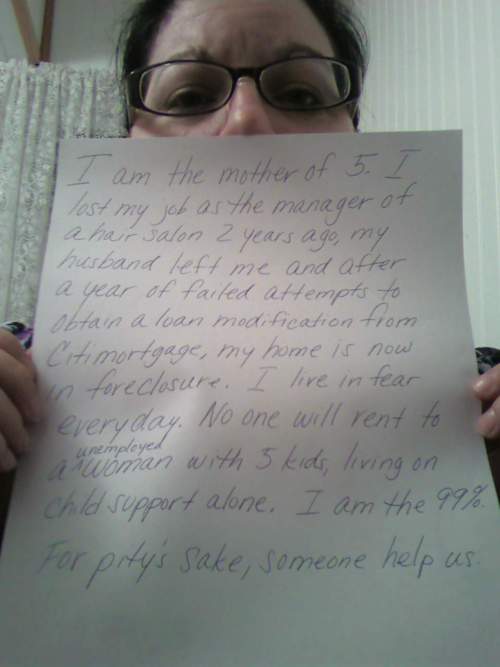 I am the mother of 5. I
lost my job as the manager of
a hair salon 2 years ago, my
husband left me and after
a year of failed attempts to
obtain a loan modification from
Citimortgage, my home is now
in foreclosure. I live in fear
everyday. No one will rent to
a unemployed woman with 5 kids, living on
child support alone. I am the 99%.
For pity's sake, someone help us.